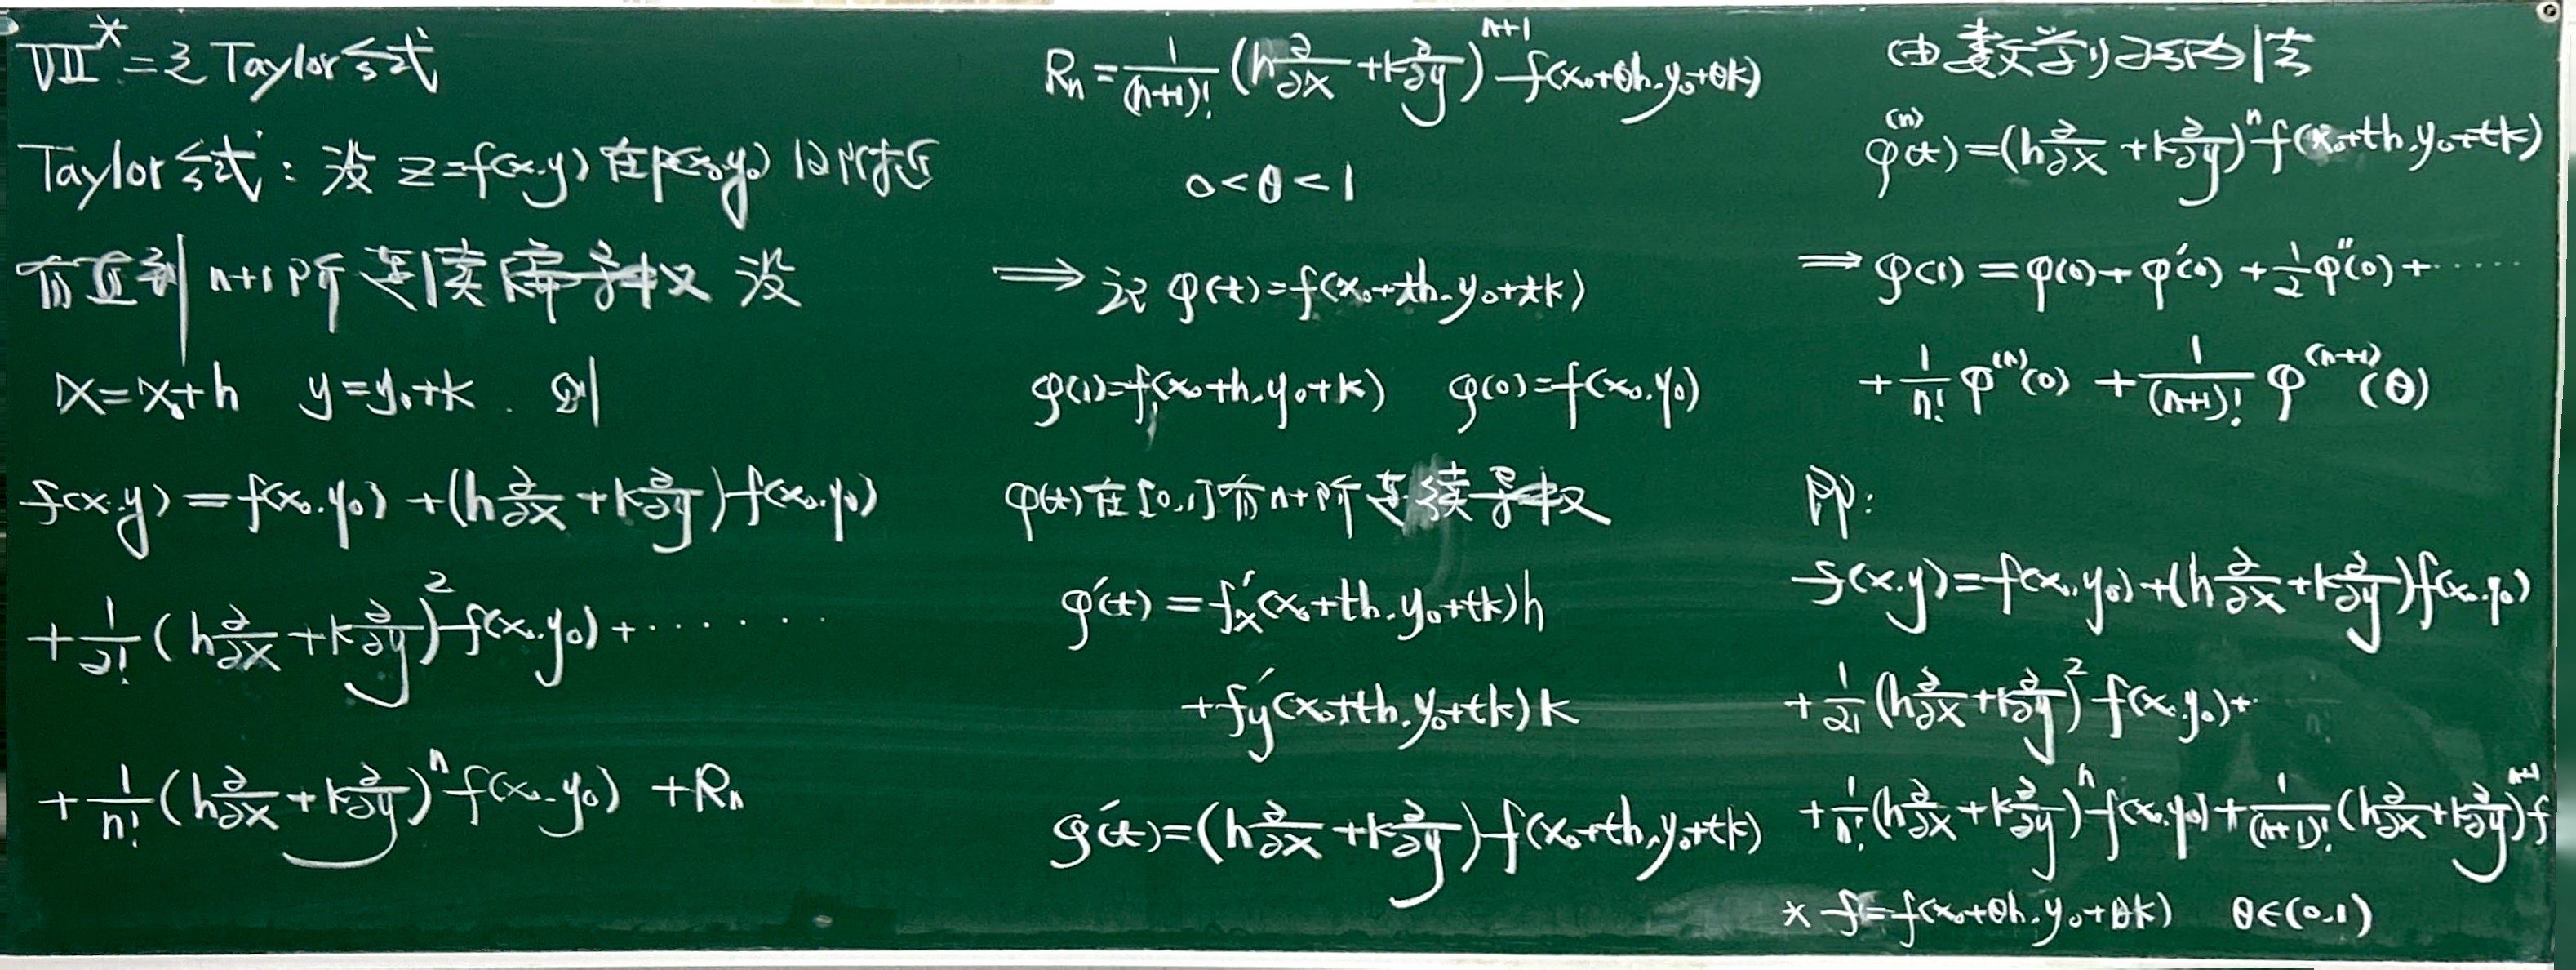 VII* 二元Taylor公式
Taylor公式：设 z=f(x,y) 在P(x₀,y₀) 及附近
有直到 n+1 阶 连续偏导数 设
x=x₀+h y=y₀+k . 则
f(x,y) = f(x₀,y₀) + (h ∂/∂x + k ∂/∂y) f(x₀,y₀)
+ 1/2! (h ∂/∂x + k ∂/∂y)² f(x₀,y₀) + ······
+ 1/n! (h ∂/∂x + k ∂/∂y)ⁿ f(x₀,y₀) + Rₙ
Rₙ = 1/(n+1)! (h ∂/∂x + k ∂/∂y)ⁿ⁺¹ f(x₀+θh, y₀+θk)
0<θ<1
⟹ 记 φ(t)=f(x₀+th, y₀+tk)
φ(1)=f(x₀+h, y₀+k) φ(0)=f(x₀,y₀)
φ(t)在[0,1]有n+1阶连续导数
φ′(t) = f′x(x₀+th, y₀+tk)h
+f′y(x₀+th, y₀+tk)k
φ′(t)=(h ∂/∂x + k ∂/∂y) f(x₀+th, y₀+tk)
由数学归纳法
φ⁽ⁿ⁾(t)=(h ∂/∂x + k ∂/∂y)ⁿ f(x₀+th, y₀+tk)
⟹ φ(1)=φ(0)+φ′(0)+1/2 φ″(0)+······
+ 1/n! φ⁽ⁿ⁾(0) + 1/(n+1)! φ⁽ⁿ⁺¹⁾(θ)
即：
f(x,y)=f(x₀,y₀)+(h ∂/∂x + k ∂/∂y)f(x₀,y₀)
+ 1/2! (h ∂/∂x + k ∂/∂y)² f(x₀,y₀)+··
+ 1/n! (h ∂/∂x + k ∂/∂y)ⁿ f(x₀,y₀) + 1/(n+1)! (h ∂/∂x + k ∂/∂y)ⁿ⁺¹ f
* f=f(x₀+θh, y₀+θk) θ∈(0,1)